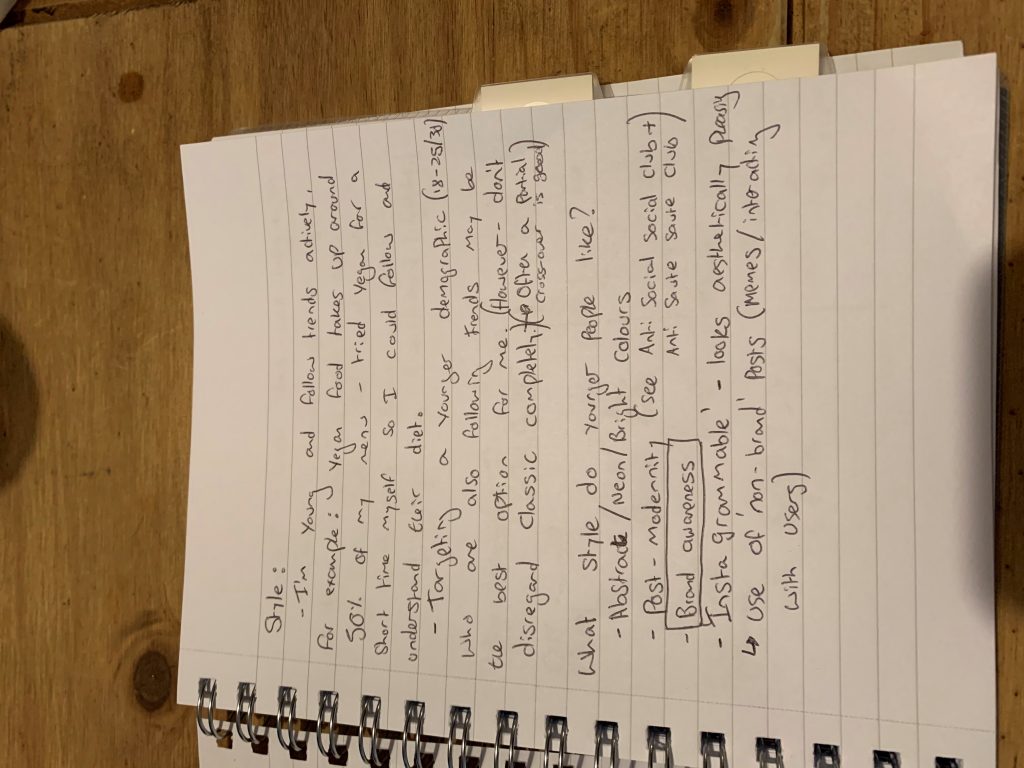 Style:
- I'm young and follow trends actively,
for example: vegan food takes up around
50% of my menu - tried vegan for a
short time myself so I could follow and
understand their diet.
- Targeting a younger demographic (18-25/30)
who are also following trends may be
the best option for me. (However - don't
disregard classic completely) (Often a partial
crossover is good)
What style do younger people like?
- Abstract / Neon / Bright Colours
- Post-modernity (See Anti Social Social Club +
Anti Saute Saute Club)
- Brand awareness
- 'Instagrammable' - looks aesthetically pleasing
↳ Use of 'non-brand' posts (Memes / interacting
with users)